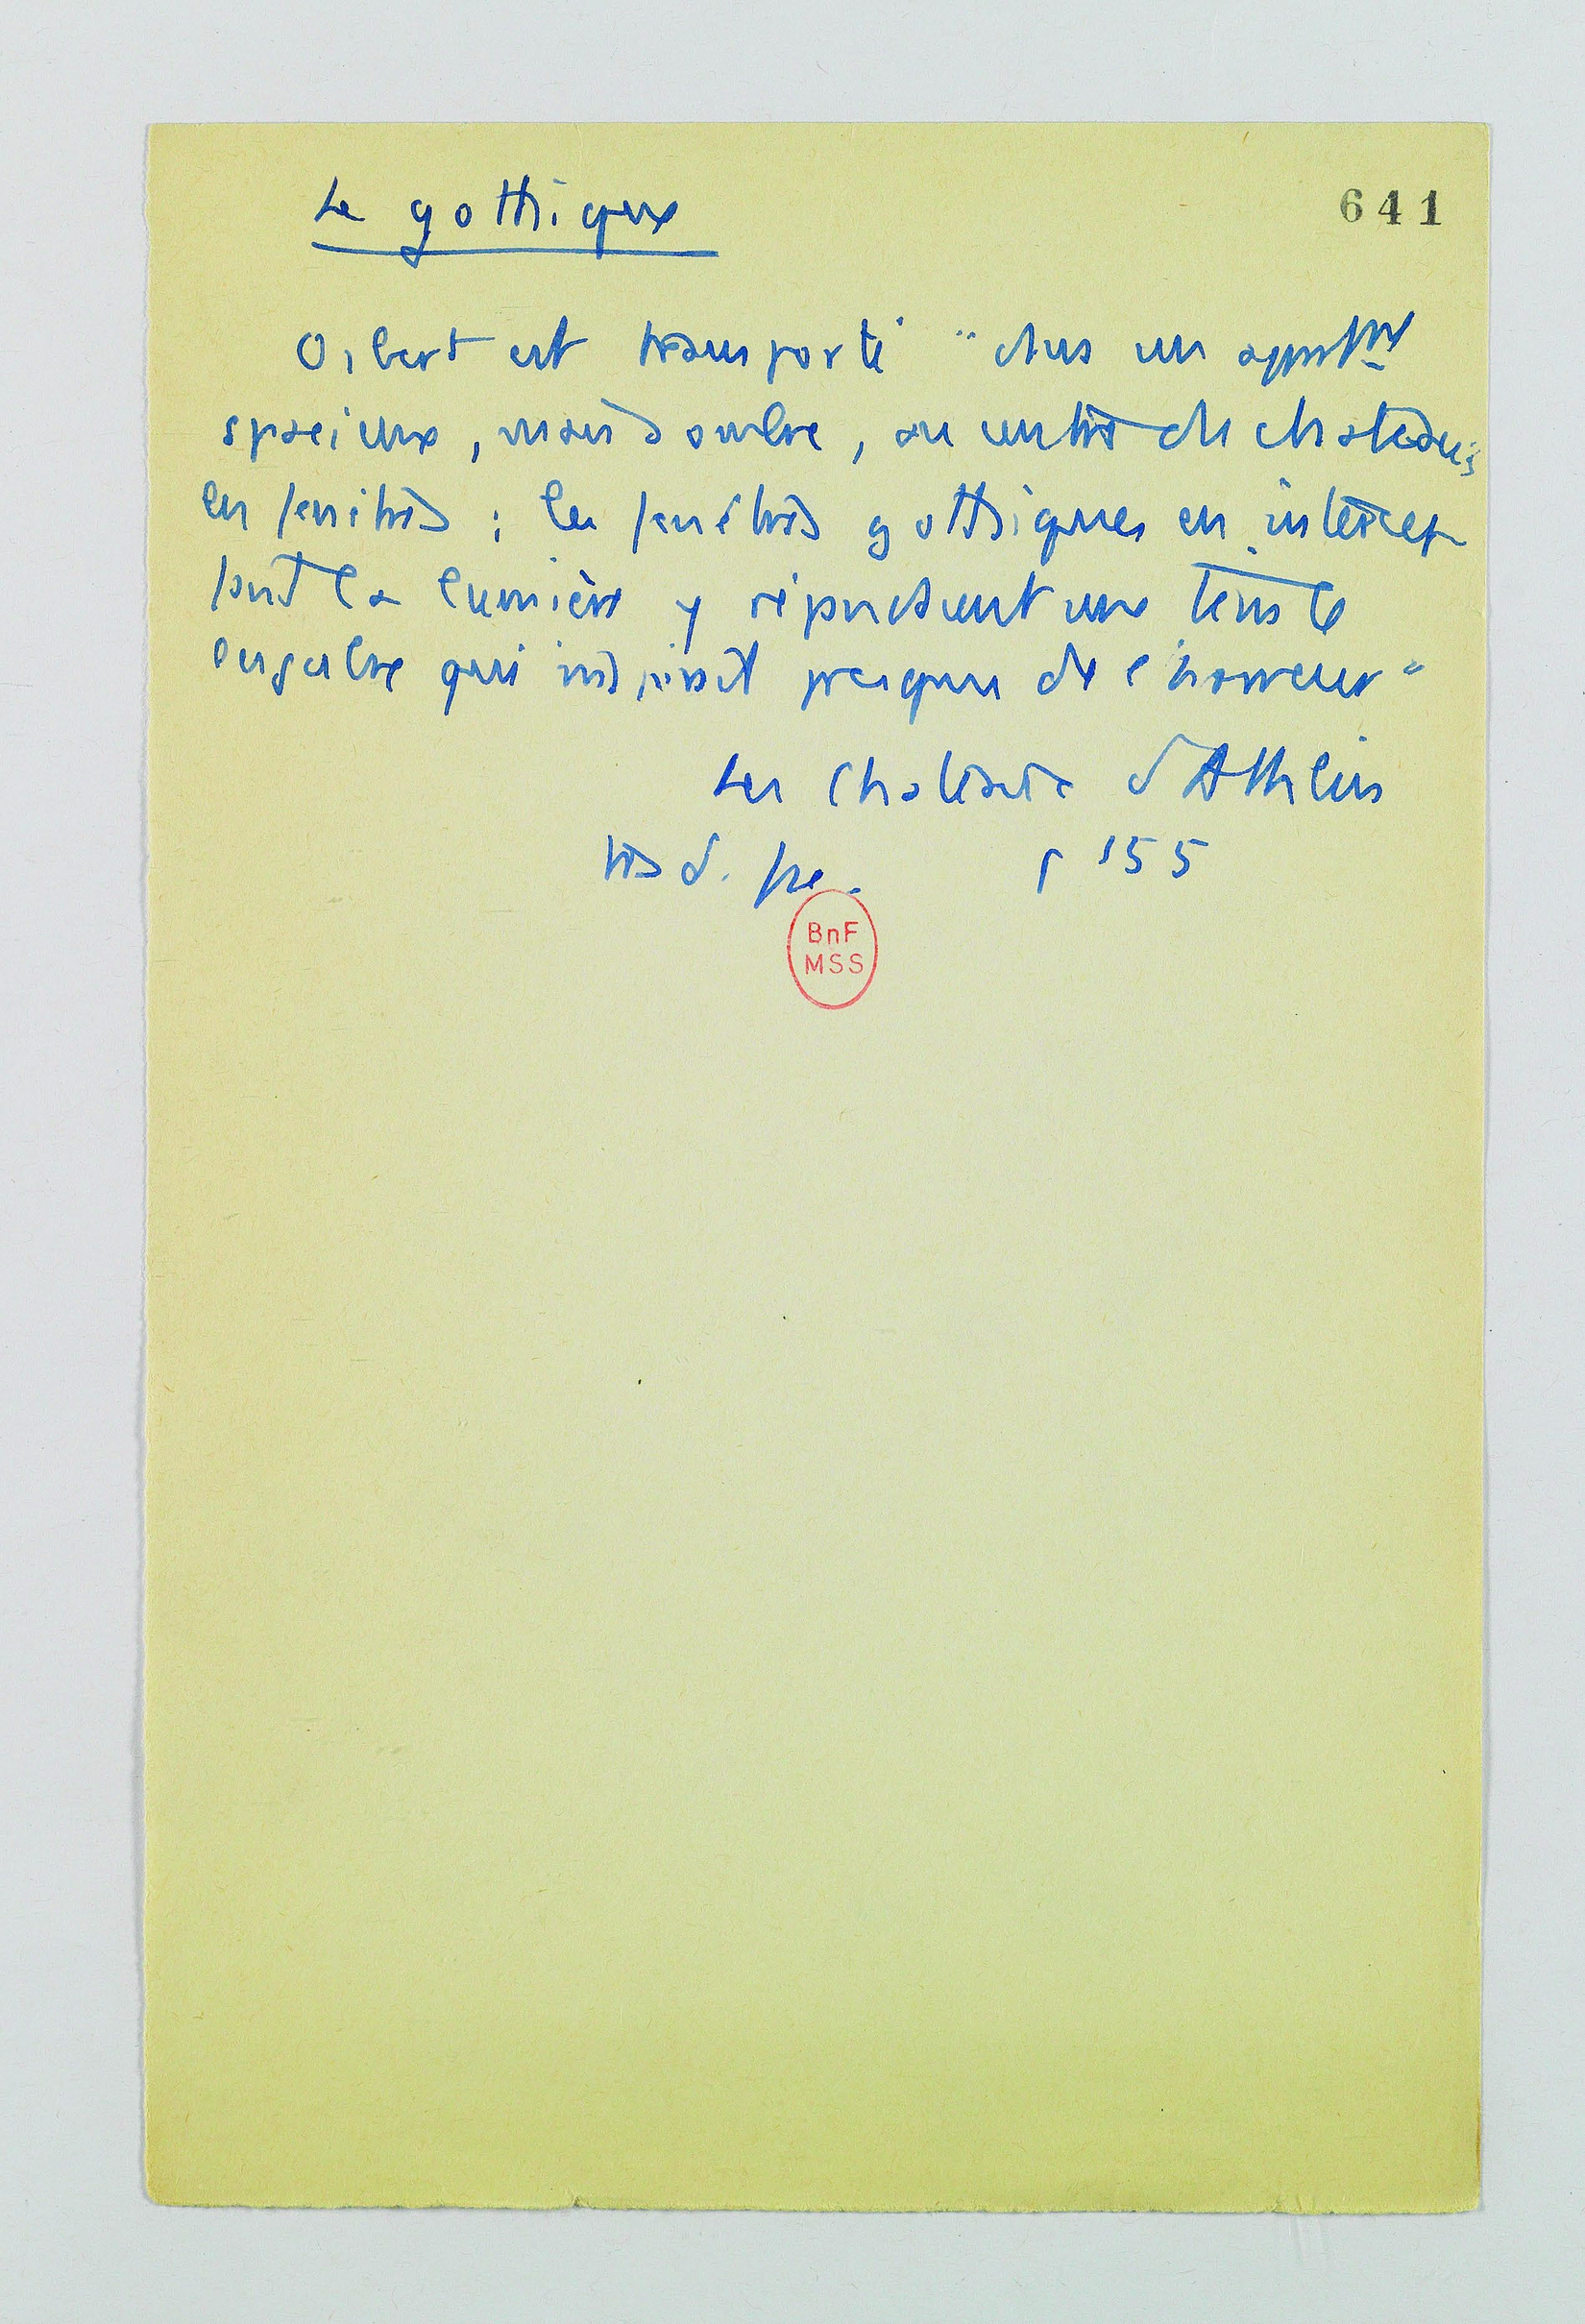 Le gothique
641
Osbert est transporté "dans un appartmt
spacieux, mais sombre, au centre du chateau ;
les fenêtres ; les fenêtres gothiques en intercep
tant la lumière y répandaient une teinte
lugubre qui inspirait presque de l'horreur"
Les Chateaux d'Athlin
trad. fse. p 155
BnF
MSS